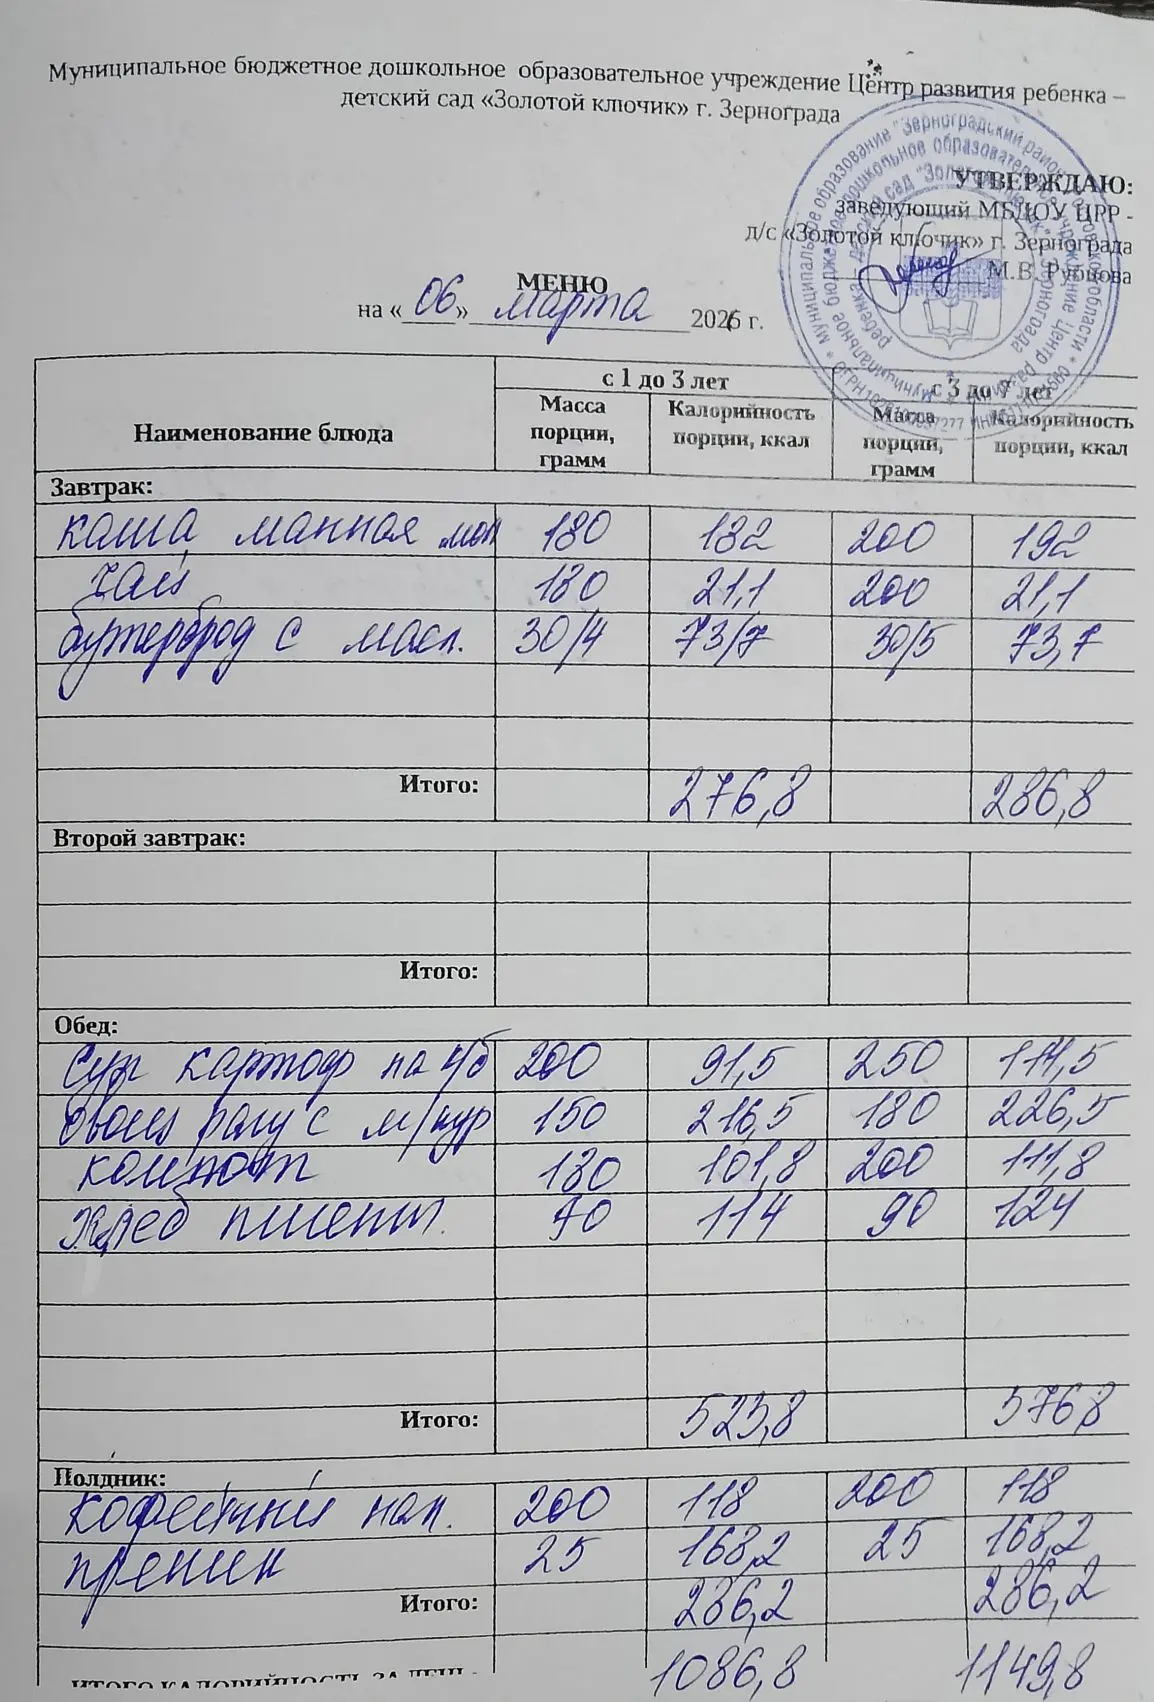 Муниципальное бюджетное дошкольное образовательное учреждение Центр развития ребенка –
детский сад «Золотой ключик» г. Зернограда
УТВЕРЖДАЮ:
заведующий МБДОУ ЦРР -
д/с «Золотой ключик» г. Зернограда
М.В. Рубцова
МЕНЮ
на «06» марта 2026 г.
Наименование блюда с 1 до 3 лет с 3 до 7 лет
Масса порции, грамм Калорийность порции, ккал Масса порции, грамм Калорийность порции, ккал
Завтрак:
каша манная мол 180 182 200 192
чай 180 21,1 200 21,1
бутерброд с масл. 30/4 73/7 30/5 73,7
Итого: 276,8 286,8
Второй завтрак:
Итого:
Обед:
Суп картоф на к/б 200 91,5 250 114,5
Овощ рагу с м/кур 150 216,5 180 226,5
компот 180 101,8 200 111,8
хлеб пшенич. 70 114 90 124
Итого: 523,8 576,8
Полдник:
кофейный нап. 200 118 200 118
пряник 25 168,2 25 168,2
Итого: 286,2 286,2
ИТОГО КАЛОРИЙНОСТЬ ЗА ДЕНЬ: 1086,8 1149,8